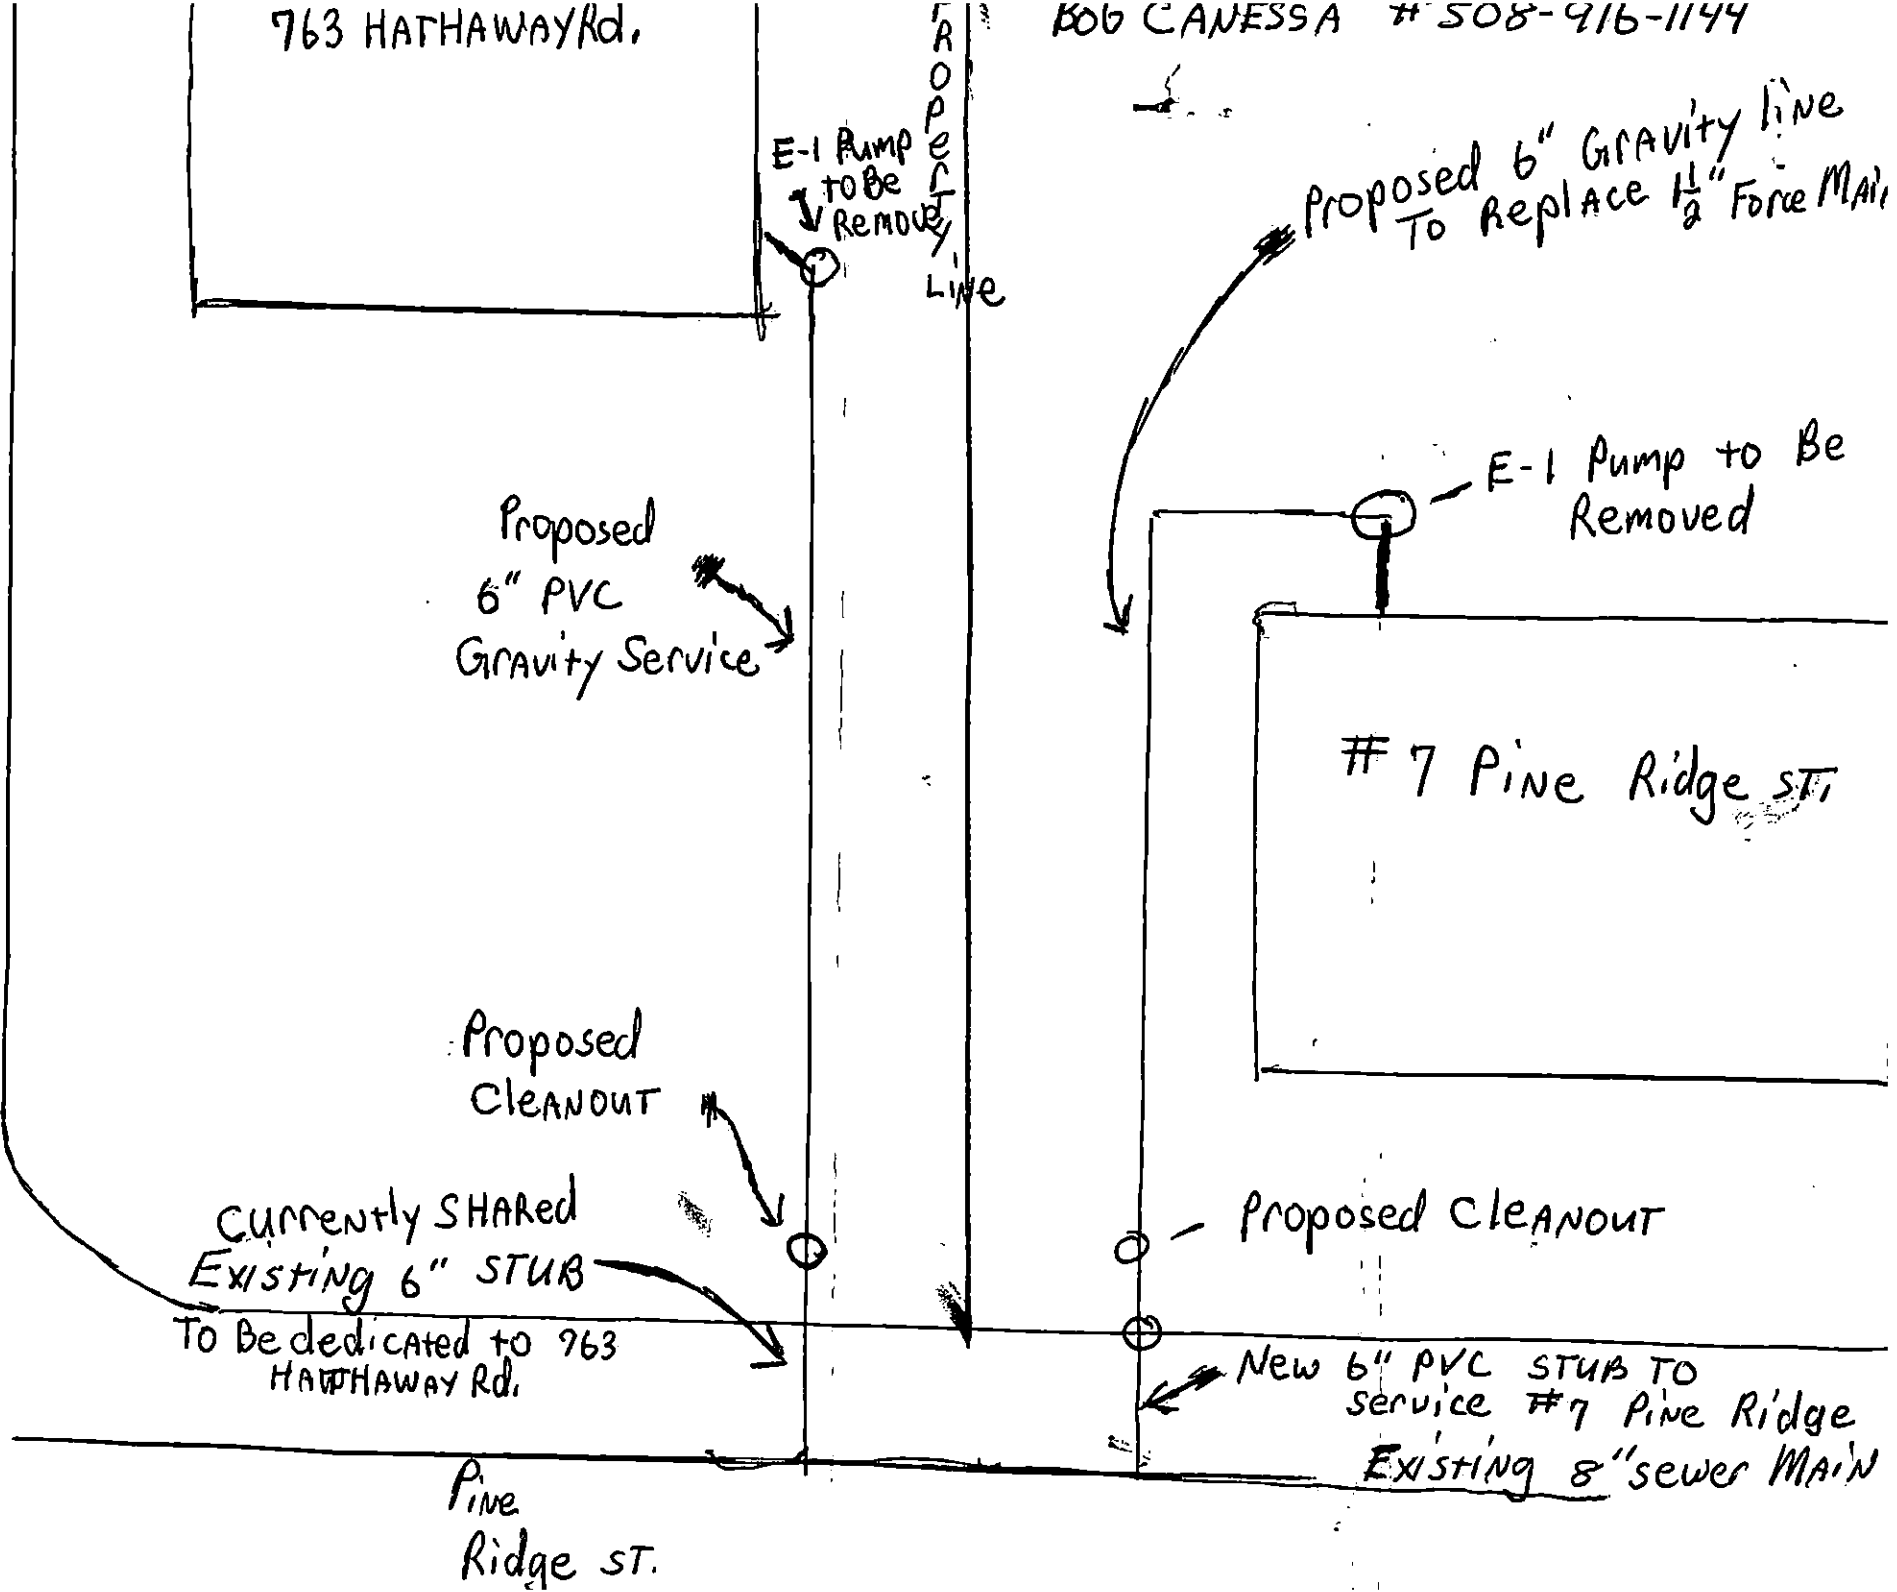 763 HATHAWAY Rd.
CANESSA # 508-916-1144
PROPERTY
LINE
E-1 Pump
to Be
Remove
Proposed 6" Gravity line
To Replace 1 1/2" Force Main
E-1 Pump to Be
Removed
Proposed
6" PVC
Gravity Service
# 7 Pine Ridge ST.
Proposed
CleANOUT
Currently SHARed
Existing 6" STUB
To Be dedicated to 763
HATHAWAY Rd.
Proposed CleANOUT
New 6" PVC STUB TO
Service #7 Pine Ridge
Existing 8" sewer MAIN
Pine
Ridge ST.